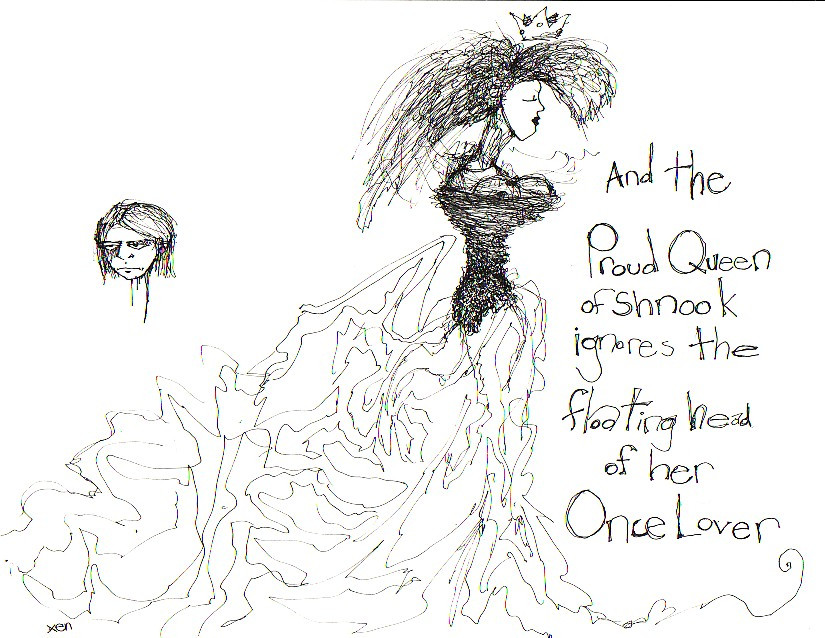 And the
Proud Queen
of Shnook
ignores the
floating head
of her
Once Lover
xen